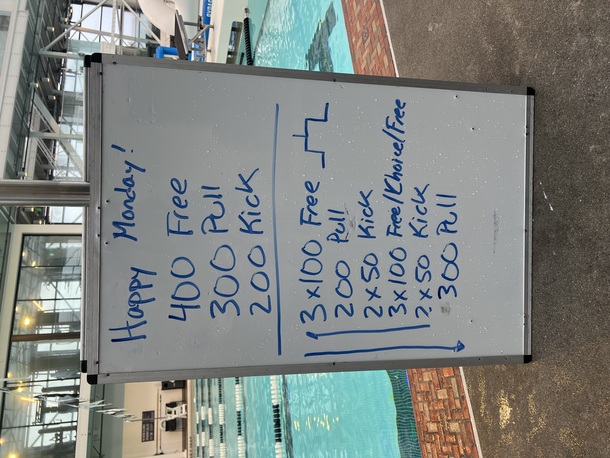 Happy Monday!
400 Free
300 Pull
200 Kick
3x100 Free
200 Pull
2x50 Kick
3x100 Free/Choice/Free
2x50 Kick
300 Pull